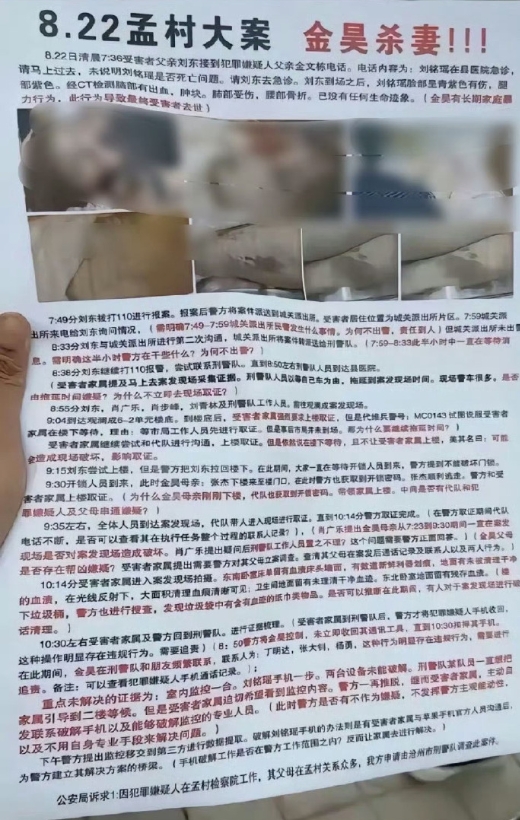 8.22孟村大案 金昊杀妻!!!
8.22日清晨7:36受害者父亲刘东接到犯罪嫌疑人父亲金文栋电话。电话内容为：刘铭瑶在县医院急诊，
请马上过去，未说明刘铭瑶是否死亡问题。请刘东去急诊。刘东到场之后，刘铭瑶脸部呈青紫色有伤，腿
部紫色。经CT检测脑部有出血，肿块。肺部受伤，腰部骨折。已没有任何生命迹象。（金昊有长期家庭暴
力行为，此行为导致最终受害者去世）
7:49分刘东拨打110进行报案。报案后警方将案件派送到城关派出所。受害者居住位置为城关派出所片区。7:59城关
出所来电给刘东询问情况，（需明确7:49-7:59城关派出所民警发生什么事情。为何不出警，责任到人）但城关派出所未出
8:33分刘东与城关派出所进行第二次沟通，城关派出所将案件转派送给刑警队。（7:59-8:33此半小时中一直在等待消
息。需明确这半小时警方在干些什么？为何不出警？）
8:36分刘东继续打110报警，尝试联系刑警队。直到8:50左右刑警队人员到达县医院。
（受害者家属提及马上去案发现场采集证据。刑警队人员以等自己车为由，拖延到案发现场时间。现场警车很多。是否
由拖延时间嫌疑？为什么不立即去现场取证？）
8:55分刘东，肖广乐，肖步峰，刘青林及刑警队工作人员。前往观澜案发现场。
9:04到达观澜府8-2单元楼后。到楼底后，受害者家属强烈要求上楼取证，但是代维兵警号：MC0143试图说服受害者
家属在楼下等待，理由：等市局工作人员先进行取证。但是事后市局并未到场。那为什么要继续拖延时间？）
受害者家属继续尝试和代队进行沟通，上楼取证。但是依然说在楼下等待，且不让受害者家属上楼，美其名曰：可能
会造成现场破坏，影响取证。
9:15刘东尝试上楼，但是警方把刘东拉回楼下。在此期间，大家一直在等待开锁人员到来，警方提到不能破坏门锁。
9:30开锁人员到来，此时金昊母亲：张杰下楼来至楼门口，在此时警方也获取到开锁密码。张杰顺利逃走。警方和受
害者家属上楼取证。（为什么金昊母亲刚刚下楼，代队也获取到开锁密码。带领家属上楼。中间是否有代队和犯
罪嫌疑人及父母串通嫌疑？）
9:35左右，全体人员到达案发现场，代队带人进入现场进行取证。直到10:14分警方取证完成。（在警方取证期间代队
电话不断，是否可以查看其在执行任务整个过程的联系人记录？），（肖广乐提出金昊母亲从7:23到9:30时间一直在案发
现场是否对案发现场造成破坏。肖广乐提出疑问后刑警队工作人员置之不理？这个问题需要警方正面回幕。）（金昊父母
是否存在帮凶嫌疑？受害者家属提出需要警方对其父母立案调查。查清其父母在案发后通话记录及联系人以及两人行为。）
10:14分受害者家属进入案发现场拍摄。
的血渍，在光线反射下，大面积清理血痕清晰可见；卫生间地面留有未理清干净血迹。东北卧室地面留有残存血渍。（楼
下垃圾桶，警方也进行搜查，发现垃圾袋中含有血痕的纸巾类物品。是否可以推断在此期间，有人对于案发现场进行破
话清理。）
10:30左右受害者家属及警方回到刑警队。进行证据梳理。（受害者家属到刑警队后，警方才将犯罪嫌疑人手机收回，
这种操作明显存在违规行为。需要追责）（8：50警方将金昊控制，未立即收回其通讯工具，直到10:30扣押其手机。
在此期间，金昊在刑警队和朋友频繁联系，联系人为：丁明达，张大钊，杨勇，这种行为明显存在违规行为，需要进行
追责。备注：可以查看犯罪嫌疑人手机通话记录；）
重点未解决的证据为：室内监控一台。刘铭瑶手机一步。两台设备未能破解。刑警队某队员一直想把
家属引导到二楼等候。但是受害者家属迫切希望看到监控内容。警方一再推脱，继而受害者家属，主动自
发联系破解手机以及能够破解监控的专业人员。（此时警方是否有不作为嫌疑，不发挥警方主观能动性，
以及不用自身专业手段来解决问题。）
下午警方提出监控移交到第三方进行数据提取。破解刘铭瑶手机的办法则是有受害者家属与苹果手机官方人员沟通后，
为警方建立其解决方案的桥梁。（手机破解工作是否在警方工作范围之内？反而让家属去进行解决。）
公安局诉求1:因犯罪嫌疑人在孟村检察院工作，其父母在孟村关系众多，我方申请由沧州市刑警队调查此案件。